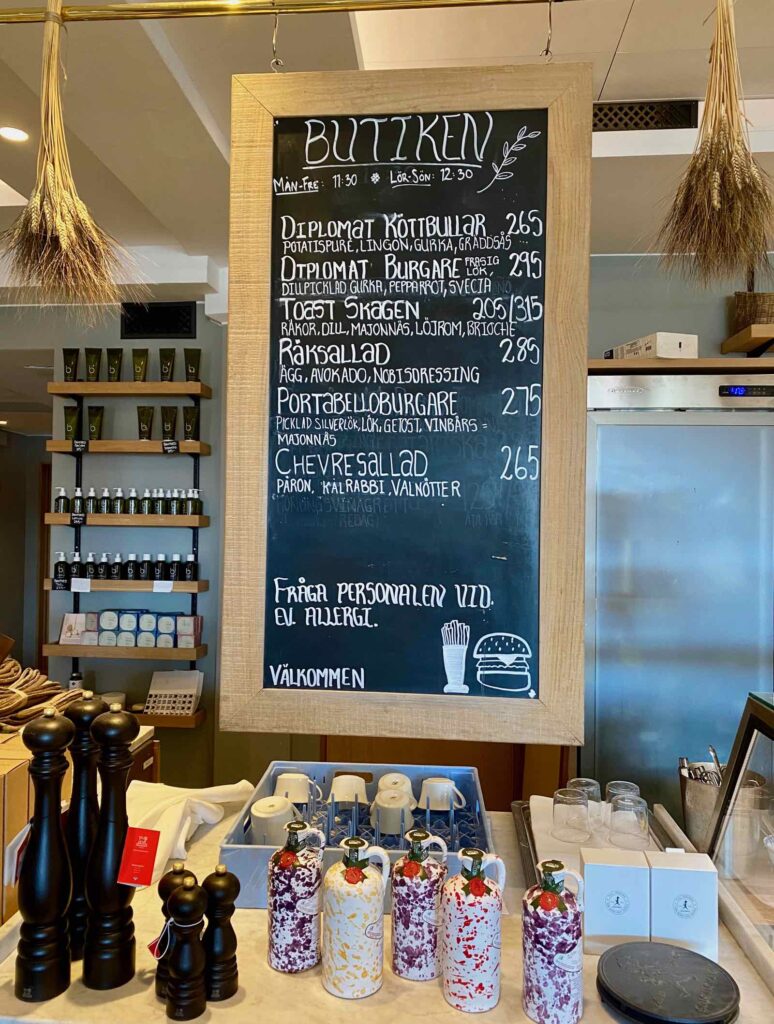 BUTIKEN
MÅN-FRE: 11:30 * LÖR-SÖN: 12:30
DIPLOMAT KÖTTBULLAR 265
POTATISPURE, LINGON, GURKA, GRÄDDSÅS
DIPLOMAT BURGARE FRASIG LÖK, 295
DILLPICKLAD GURKA, PEPPARROT, SVECIA
TOAST SKAGEN 205/315
RÄKOR, DILL, MAJONNÄS, LÖJROM, BRIOCHE
RÄKSALLAD 289
ÄGG, AVOKADO, NOBISDRESSING
PORTABELLOBURGARE 275
PICKLAD SILVERLÖK, LÖK, GETOST, VINBÄRS=
MAJONNÄS
CHEVRESALLAD 265
PÄRON, KÅLRABBI, VALNÖTTER
FRÅGA PERSONALEN VID.
EV. ALLERGI.
VÄLKOMMEN